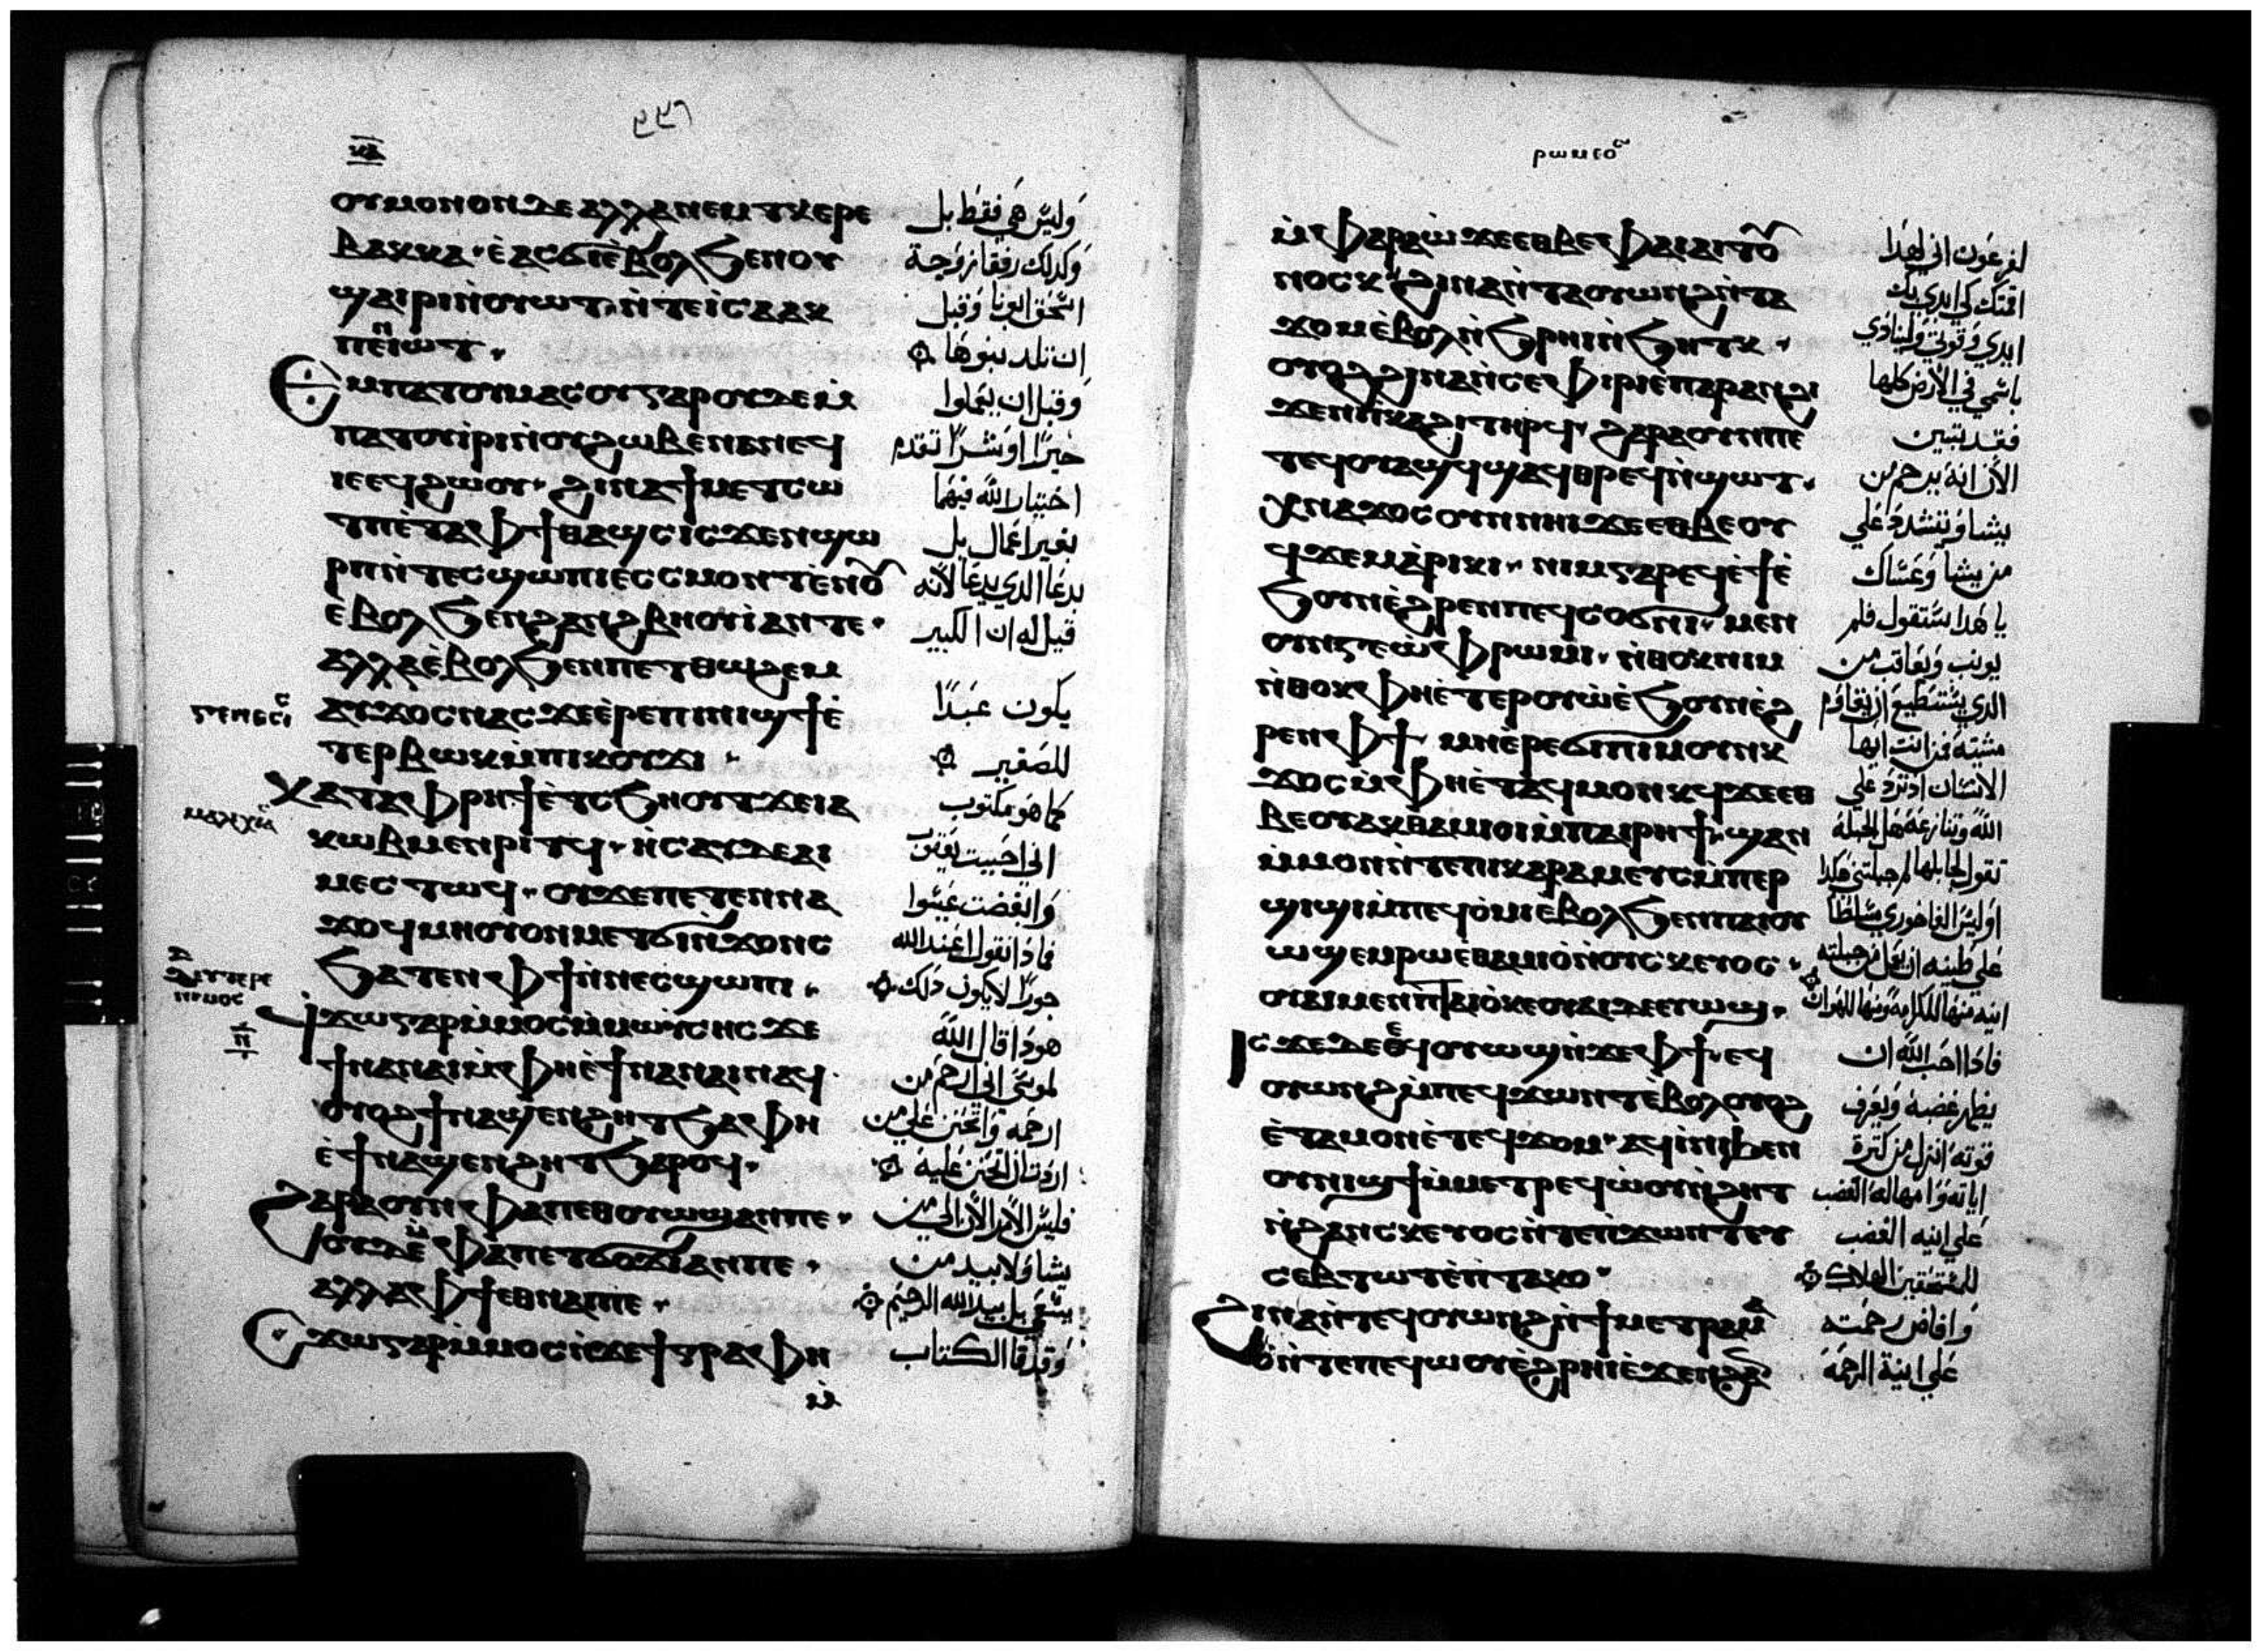 ⲟⲩⲙⲟⲛⲟⲛⲇⲉⲁⲗⲗⲁⲛⲉⲙⲧⲕⲉⲣⲉ
ⲃⲁⲕⲕⲁ· ⲉ̀ⲁⲥϭⲓⲉ̀ⲃⲟⲗϧⲉⲛⲟⲩ
ϣⲁⲓⲣⲓⲛ̀ⲟⲩⲱⲧ· ⲛ̀ⲧⲉⲓ̀ⲥⲁⲁⲕ
ⲡⲉⲛⲓⲱⲧ·
Ⲉⲙⲡⲁⲧⲟⲩⲙⲁⲥⲟⲩⲅⲁⲣⲟⲩⲇⲉⲙ̀
ⲡⲁⲧⲟⲩⲓ̀ⲣⲓⲛ̀ⲟⲩϩⲱⲃⲉⲛⲁⲛⲉϥ
ⲓⲉⲉϥϩⲱⲟⲩ· ϩⲓⲛⲁϯⲙⲉⲧⲥⲱ
ⲧⲡⲉ̀ⲧⲁⲫϯⲑⲁϣⲥⲓⲥϫⲉⲛϣⲱ
ⲣⲡⲛ̀ⲧⲉⲥϣⲱⲡⲓⲉⲥⲥⲙⲟⲛⲧⲉ̀ⲛⲟ̄
ⲉⲃⲟⲗϧⲉⲛϩⲁⲛϩⲃⲏⲟⲩⲓ̀ⲁⲛⲧⲉ·
ⲁⲗⲗⲁⲉ̀ⲃⲟⲗϧⲉⲛⲡⲉⲧⲑⲱϩⲉⲙ
ⲁⲩϫⲟⲥⲛⲁⲥϫⲉⲉ̀ⲣⲉⲡⲓⲛⲓϣϯⲉ̀
ⲧⲉⲣⲃⲱⲕⲙ̀ⲡⲓⲕⲟⲩϫⲓ·
Ⲕⲁⲧⲁⲫⲣⲏϯⲉ̀ⲧⲥϧⲏⲟⲩⲧϫⲉⲓⲁ
ⲕⲱⲃⲙⲉⲛⲣⲓⲧϥ· ⲏ̀ⲥⲁⲩⲇⲉⲁⲓ
ⲙⲉⲥⲧⲱϥ· ⲟⲩϫⲉⲡⲉⲧⲉⲛⲛⲁ
ϫⲟϥⲙⲏⲟⲩⲟⲛⲙⲉⲧϭⲓⲛ̀ϫⲟⲛⲥ
ϧⲁⲧⲉⲛⲫϯⲛ̀ⲛⲉⲥϣⲱⲡⲓ·
ϥϫⲱⲅⲁⲣⲙ̀ⲙⲟⲥⲙ̀ⲙⲱⲩ̀ⲥⲏⲥϫⲉ
ϯⲛⲁⲛⲁⲓⲙ̀ⲫⲏⲉ̀ϯⲛⲁⲛⲁⲓⲛⲁϥ
ⲟⲩⲟϩϯⲛⲁϣⲉⲛϩⲏⲧϧⲁⲫⲏ
ⲉ̀ϯⲛⲁϣⲉⲛϩⲏⲧϧⲁⲣⲟϥ·
Ϩⲁⲣⲁⲟⲩⲛⲫⲁⲡⲉⲑⲟⲩⲱϣⲁⲛⲡⲉ·
ⲟⲩⲇⲉⲙ̀ⲫⲁⲡⲉⲧϭⲟϫⲓⲁⲛⲡⲉ·
ⲁⲗⲗⲁⲫϯⲉⲑⲛⲁⲡⲉ·
Ⲥϫⲱⲅⲁⲣⲙ̀ⲙⲟⲥⲛ̀ϫⲉϯⲅⲣⲁⲫⲏ
ⲙ̀
وليس هي فقط بل
وكذلك رفقا زوجة
اسحق ابونا وقبل
ان تلد بنوها
وقبل ان يعملوا
خيرًا او شرًا تقدم
اختيار الله فيهما
بغير اعمال بل
بدعا الذي يدعا لانه
قيل له ان الكبير
يكون عبدًا
للصغير
كما هو مكتوب
اني احببت يعقوب
وابغضت عيسوا
فماذا نقول اعند الله
جورًا لا يكون ذلك
هوذا قال الله
لموسى اني ارحم من
ارحمه واتحنن علي من
اردت ان اتحنن عليه
فليس الامر الان الي من
يشا ولا بيد من
يسعى بل بيد الله الرحيم
وقد قال الكتاب
ⲅⲉⲛⲉⲥⲓⲥ
ⲙⲁⲗⲁⲭⲓⲁ
ⲣⲱⲙⲉⲟⲥ
ⲙ̀ⲫⲁⲣⲁⲱ̀ϫⲉⲉⲑⲃⲉⲫⲁⲓⲁⲓⲧⲟ̄
ⲛⲟⲥⲕ ϩⲓⲛⲁⲛ̀ⲧⲁⲟⲩⲱⲛϩⲛ̀ⲧⲁ
ϫⲟⲙⲉ̀ⲃⲟⲗⲛ̀ϧⲣⲏⲓⲛ̀ϧⲏⲧⲕ·
ⲟⲩⲟϩϩⲓⲛⲁⲛ̀ⲥⲉⲫⲓⲣⲓⲉ̀ⲡⲁⲣⲁⲛϩⲓ
ϫⲉⲛⲡⲓⲕⲁϩⲓⲧⲏⲣϥ· ϩⲁⲣⲁⲟⲩⲛⲡⲉ
ⲧⲉϥⲟⲩⲁϣϥϣⲁϥⲑⲣⲉϥⲛ̀ϣⲟⲧ·
Ⲭⲛⲁϫⲟⲥⲟⲩⲛⲛⲏⲓϫⲉⲉⲑⲃⲉⲟⲩ
ϥϫⲉⲙⲁ̀ⲣⲓⲕⲓ· ⲛⲓⲙⲅⲁⲣⲉϥⲉ̀ϯⲉ̀
ϧⲟⲩⲛⲉ̀ϩⲣⲉⲛⲡⲉϥⲥⲟϭⲛⲓ· ⲙⲉⲛ
ⲟⲩⲛⲅⲉⲱ̀ⲫⲣⲱⲙⲓ· ⲛ̀ⲑⲟⲕⲛⲓⲙ
ⲛ̀ⲑⲟⲕⲫⲏⲉ̀ⲧⲉⲣⲟⲩⲱ̀ⲉ̀ϧⲟⲩⲛⲉ̀ϩ
ⲣⲉⲛⲫϯ ⲙⲏⲉ̀ⲣⲉⲡⲓⲙⲟⲩⲛⲕ
ϫⲟⲥⲙ̀ⲫⲏⲉ̀ⲧⲁϥⲙⲟⲛⲕϥϫⲉⲉⲑ
ⲃⲉⲟⲩⲁⲕⲑⲁⲙⲓⲟⲓⲙ̀ⲡⲁⲓⲣⲏϯ· ϣⲁⲛ
ⲙ̀ⲙⲟⲛⲛ̀ⲧⲉⲡⲓⲕⲉⲣⲁⲙⲉⲩⲥⲙ̀ⲡⲉⲣ
ϣⲓϣⲓⲙ̀ⲡⲉϥⲟ̀ⲙⲓⲉ̀ⲃⲟⲗϧⲉⲛⲡⲁⲓⲟⲩ
ⲱϣⲉⲙⲣⲱⲉ̀ⲑⲁⲙⲓⲟ̀ⲛ̀ⲟⲩⲥⲕⲉⲩⲟⲥ·
ⲟⲩⲁⲓⲙⲉⲛⲡ̀ⲧⲁⲓⲟ̀ⲕⲉⲟⲩⲁⲓⲇⲉⲉⲩϣⲱϣ·
Ⲓⲥϫⲉⲇⲉⲉϥⲟⲩⲱϣⲛ̀ϫⲉⲫϯ· ⲉϥ
ⲟⲩⲱⲛϩⲙ̀ⲡⲉϥϫⲱⲛⲧⲉ̀ⲃⲟⲗⲟⲩⲟϩ
ⲉ̀ⲧⲁⲙⲟⲛⲉ̀ⲧⲉϥϫⲟⲙ· ⲁϥⲓ̀ⲛⲓϧⲉⲛ
ⲟⲩⲛⲓϣϯⲙ̀ⲙⲉⲧⲣⲉϥⲱ̀ⲟⲩⲛ̀ϩⲏⲧ
ⲛ̀ϩⲁⲛⲥⲕⲉⲩⲟⲥⲛ̀ⲧⲉⲡ̀ϫⲱⲛⲧⲉⲩ
ⲥⲉⲃⲧⲱⲧⲉ̀ⲡⲧⲁⲕⲟ·
Ϩⲓⲛⲁⲛ̀ⲧⲉϥⲟⲩⲱⲛϩⲛ̀ϯⲙⲉⲧⲣⲁⲙⲁ̄
ⲟ̀ⲛ̀ⲧⲉⲡⲉϥⲱⲟⲩⲉ̀ϩⲣⲏⲓⲉ̀ϫⲉⲛϩⲁ̄
لفرعون اني لهذا
اقمتك كي ابدي بك
ايدي وقوتي ولينادي
باسمي في الارض كلها
فقد تبين
الان انه يرحم من
يشا ويتشدد علي
من يشا وعساك
يا هذا ستقول فلم
يونب ويعاقب من
الذي يستطيع ان يقاوم
مشيته فمن انت ايها
الانسان اذ ترد علي
الله وتنازعه هل الجبلة
تقول لجابلها لم جبلتني هكذا
اوليس الفاخوري مسلطًا
علي طينه ان يعمل من جبلته
انيه منها للكرامه ومنها للهوان
فاذا احب الله ان
يظهر غضبه ويعرف
قوته انزل من كثرة
اياته وامهاله الغضب
علي انيه الغضب
للمستحقين الهلاك
وافاض رحمته
علي انية الرحمه